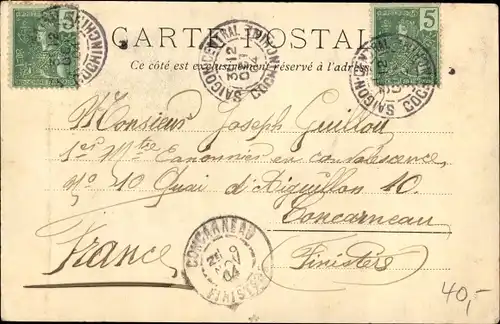 5
5
CARTE POSTALE
Ce côté est exclusivement réservé à l'adresse
SAIGON-CENTRAL COCHINCHINE
SAIGON-CENTRAL COCHINCHINE
Monsieur Joseph Guillou
1er Mtre Canonnier en convalescence,
No 10 Quai d'Aiguillon 10.
Concarneau
France (Finistère)
CONCARNEAU FINISTERE
NOV
04
40,-